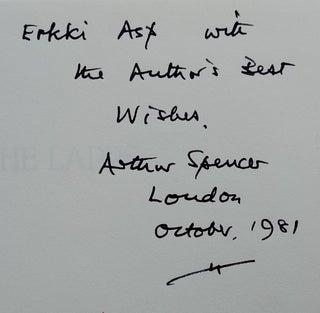 Erkki Asp with
the Author's Best
Wishes.
Arthur Spencer
London
October, 1981